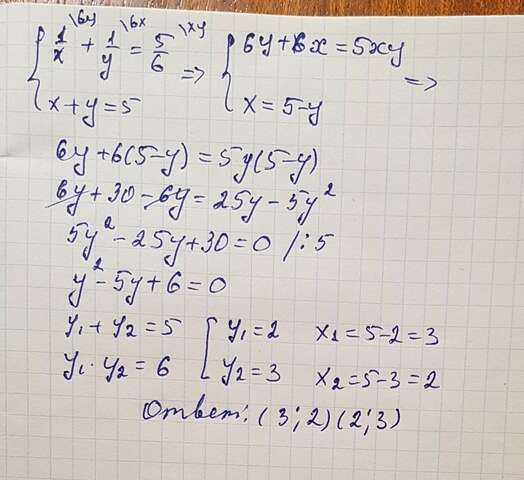 { 1/x \6y + 1/y \6x = 5/6 \xy => { 6y+6x=5xy =>
x+y=5 x=5-y
6y+6(5-y)=5y(5-y)
6y+30-6y=25y-5y²
5y²-25y+30=0 /:5
y²-5y+6=0
y₁+y₂=5 [ y₁=2 x₁=5-2=3
y₁·y₂=6 y₂=3 x₂=5-3=2
Ответ: (3;2)(2;3)